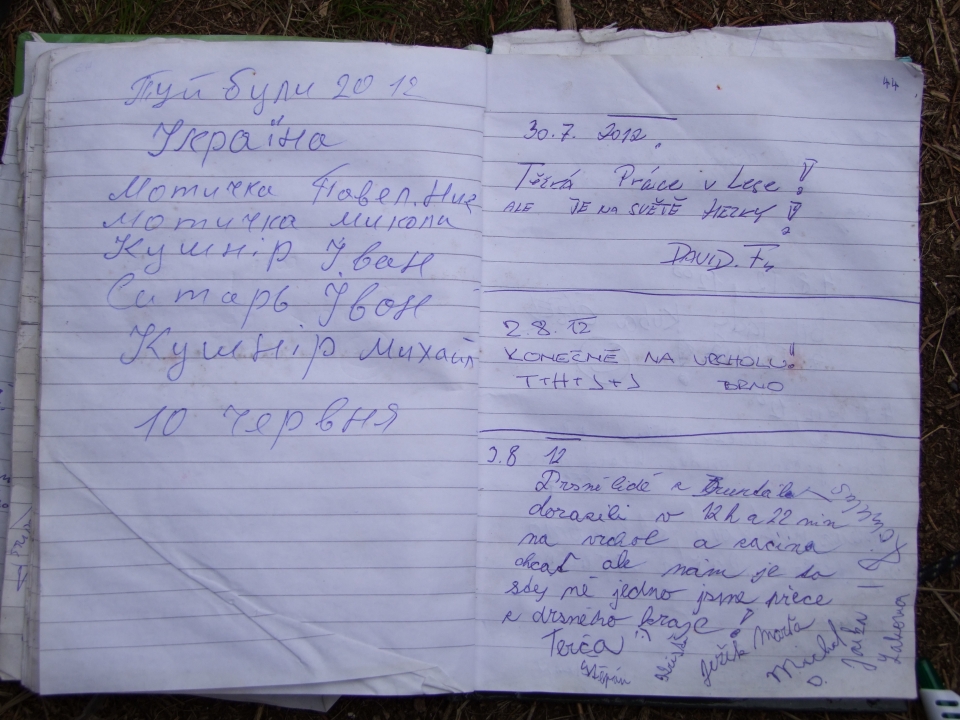 Туй були 2012
Україна
Мотичка Павел.
Мотичка Микола
Кушнір Іван
Ситарь Івон
Кушнір Михайл
10 червня
44
30.7. 2012.
Těžká Práce v Lese!
ALE JE NA SVĚTĚ HEZKY!
DAVID. F.
2.8. 12
KONEČNĚ NA VRCHOLU!!
T+H+J+J BRNO
3.8 12
Drsní lidé z Bruntálu
dorazili v 12h a 22 min
na vrchol a začíná
chcat ale nám je to
vždy né jedno jsme přece
z drsného kraje!
Terča :)
Štěpán
Jeřék
Marťa
Michal
D.
Jarka